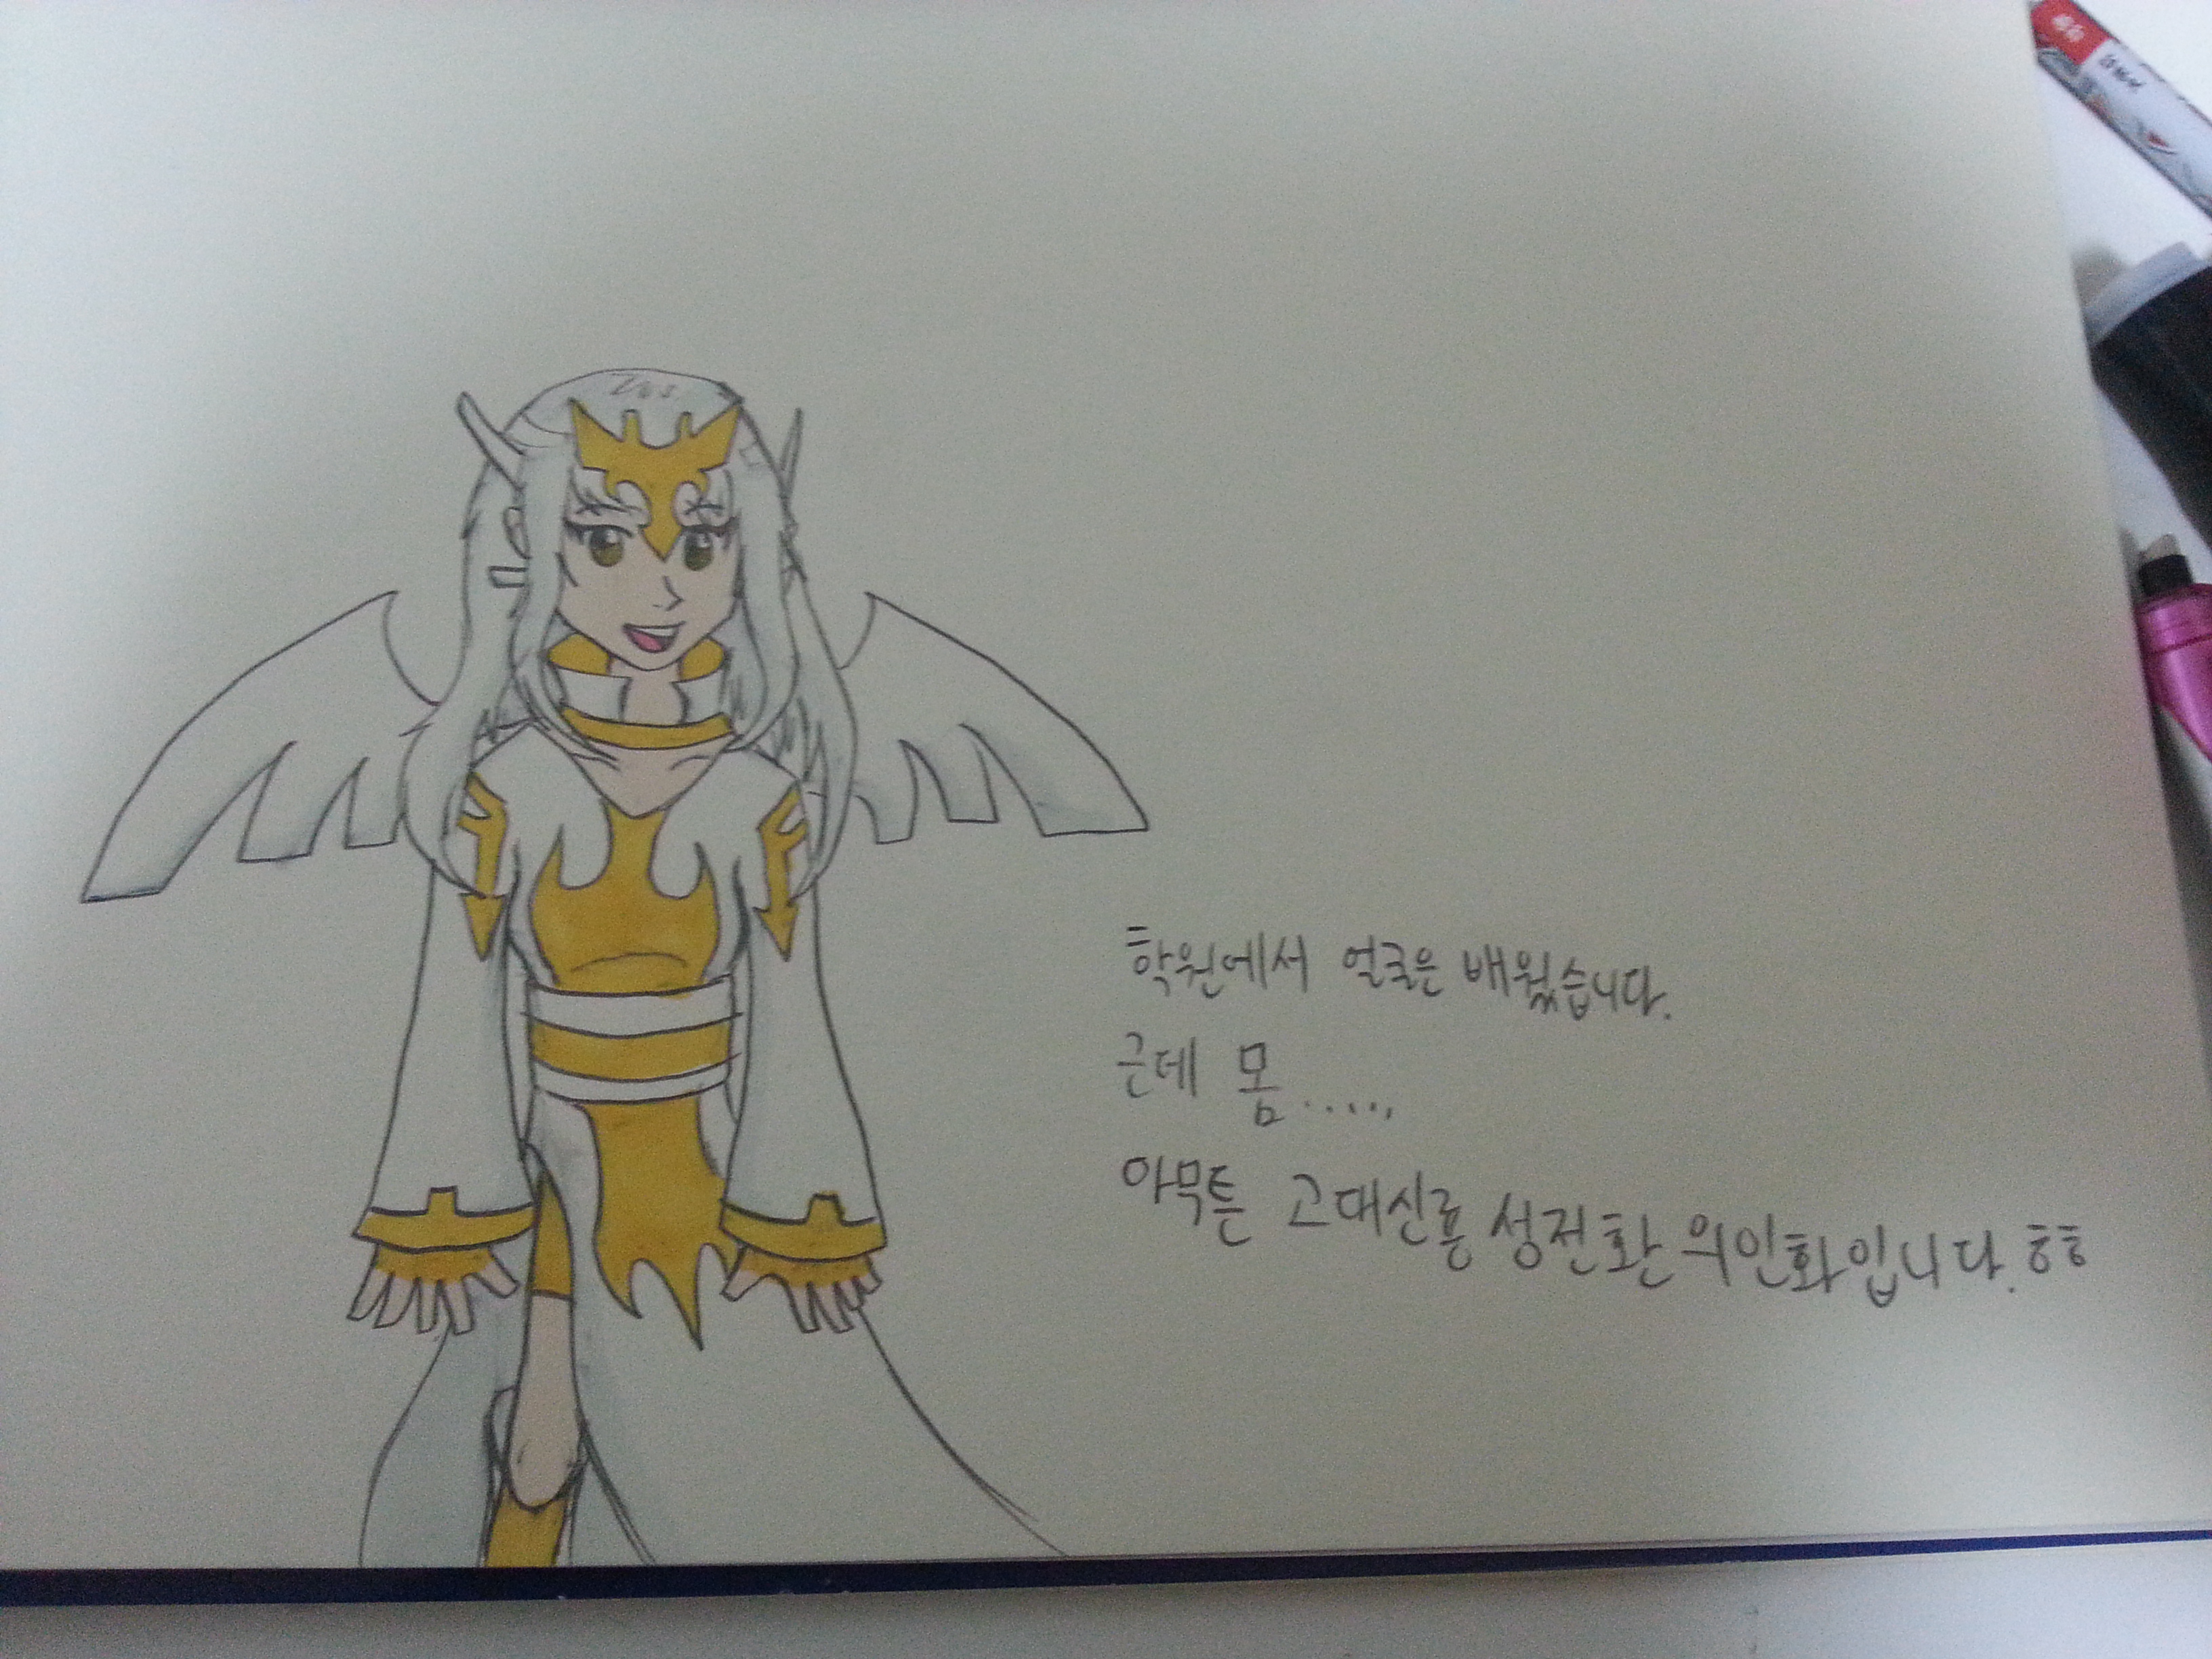 학원에서 얼굴은 배웠습니다.
근데 몸......
아무튼 고대신룡 성전환 의인화입니다. ㅎㅎ